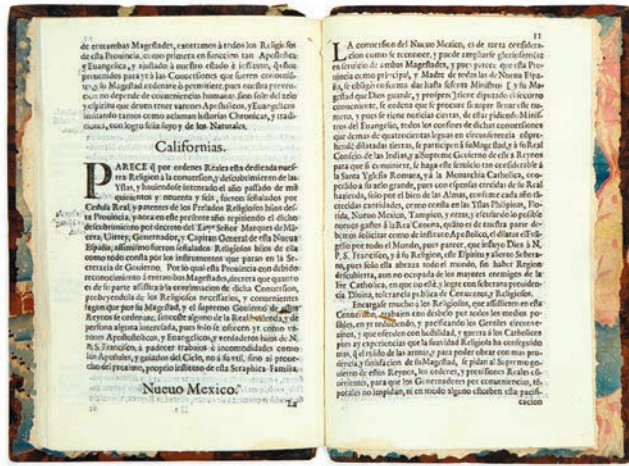 de entrambas Magestades, exortamos à todos los Religiosos
de esta Provincia, como primera en funcion tan Apostolica
y Euangelica, y ajustado à nuestro estado è instituto, q̃ estos
preuenidos para yr à las Conuersiones que fueren conuenien-
y su Magestad ordenare ò permitiere, pues nuestra preuen-
no depende de conueniencias humanas, sino solo del zelo
y espiritu que deven tener varones Apostolicos, y Euangelicos
imitando tantos como aclaman historias Chronicas, y tradi-
ciones, con logro assi suyo y de los Naturales.
Californias.
PARECE q̃ por ordenes Reales esta dedicada nues-
tra Religion à la conuersion, y descubrimiento de las
Yslas, y hauiendose intentado el año passado de mil
quinientos y nouenta y seis, fueron señalados por
Cedula Real, y patentes de los Prelados Religiosos hijos des-
ta Prouincia, y aora en este presente año repitiendo el dicho
descubrimiento por decreto del Exᵐᵒ Señor Marques de Man-
cera, Virrey, Gouernador, y Capitan General de esta Nueua
España, assimismo fueron señalados Religiosos hijos de ella
como todo consta por los instrumentos que paran en la Se-
cretaria de Gouierno. Por lo qual esta Prouincia con debido
reconocimiento à entrambas Magestades, decreta que quanto
es de su parte assistirà à la continuacion de dicha Conuersion,
probeyendola de los Religiosos necessarios, y conuenientes
segun que por su Magestad, y el supremo Gouierno de estos
Reynos se ordenare, sin coste alguno de la Real hazienda, y de
persona alguna interesada, pues solo se ofrecen yr como va-
rones Apostolicos, y Euangelicos, y verdaderos hijos de N.
P. S. Francisco, à padecer trabajos è incomodidades como
los Apostoles, y guiados del Cielo, no à su vtil, sino al proue-
cho del proximo, proprio instituto de esta Seraphica Familia.
Nueuo Mexico.
La
LA conuersion del Nueuo Mexico, es de tanta considera-
cion como se reconoce, y puede ampliarse gloriosamente
en seruicio de ambas Magestades, y pues parece que esta Pro-
uincia como principal, y Madre de todas las de Nueua Espa-
ña, se obligò en forma dar hasta sesenta Ministros, y su Mage-
stad que Dios guarde, y prospere, tiene diputado el socorro
conueniente, se ordena que se procure siempre llenar este nu-
mero, y pues se tiene noticias ciertas, de estar pidiendo Minis-
tros del Euangelio, todos los confines de dichas conuersiones
que demas de quatrocientas leguas en circumferencia ofpre-
hende dilatadas tierras, se participen à su Magestad, y à su Real
Consejo de las Indias, y al Supremo Gouierno de estos Reynos
para que si conuiniere, se haga este seruicio tan considerable à
la Santa Yglesia Romana, y à la Monarchia Catholica, coo-
perado à su zelo grande, pues con espensas crecidas de su Real
hazienda, solo por el bien de las Almas, consume cada año cre-
cidas cantidades, como consta en las Yslas Philipinas, Flo-
rida, Nueuo Mexico, Tampico, y otras, y escusando lo posible
nueuos gastos à la Rea Corona, quãto es de nuestra parte de-
bemos solicitar como de instituto Apostolico, el dilatar el Euã-
gelio por todo el Mundo, pues parece, que influye Dios à N.
P. S. Francisco, y à su Religion, este Espiritu y aliento Sobera-
no, pues solo esta abraza todo el mundo, sin haber Region
descubierta, aun no ocupada de los mayores enemigos de la
Fee Catholica, en que no estè, y logre con soberana prouiden-
cia Diuina, tolerancia publica de Conuentos, y Religiosos.
Encargase mucho à los Religiosos, que assistieren en esta
Conuersion, trabajen con desbelo por todos los medios po-
sibles, en yr reduciendo, y pacificando los Gentiles circunve-
zinos, y que ofenden con hostilidad, y guerra à los Catholicos
pues ay experiencias que la suauidad Religiosa ha conseguido
mas, q̃ el roldo de las armas, y para poder obrar con mas pru-
dencia, y satisfacion de su Magestad, se pidan al Supremo go-
uierno de estos Reynos, los ordenes, y prouisiones Reales cõ-
uenientes, para que los Gouernadores por conueniencias, tẽ-
porales no impidan, ni en modo alguno estoruen esta pacifi-
cacion